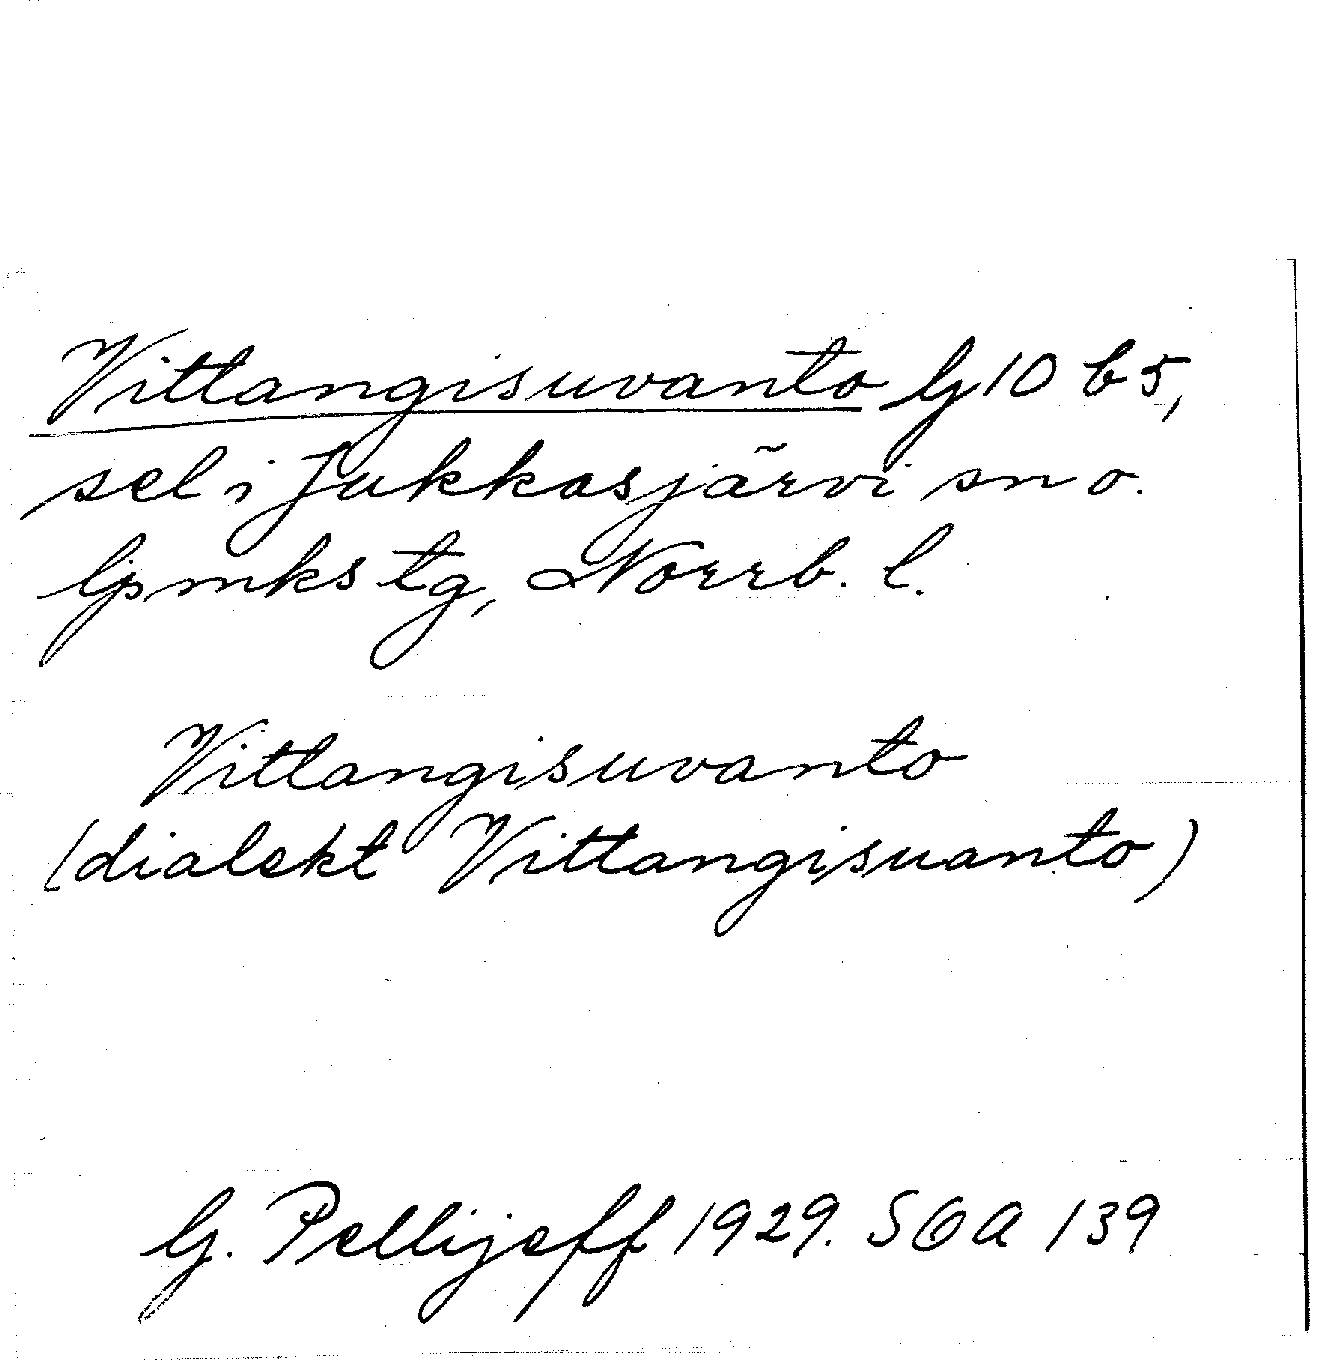 Vittangisuvanto G 10 b 5,
sel i Jukkasjärvi sn o.
lpmks tg, Norrb. l.
Vittangisuvanto
(dialekt Vittangisuanto)
G. Pellijeff 1929. SOA 139